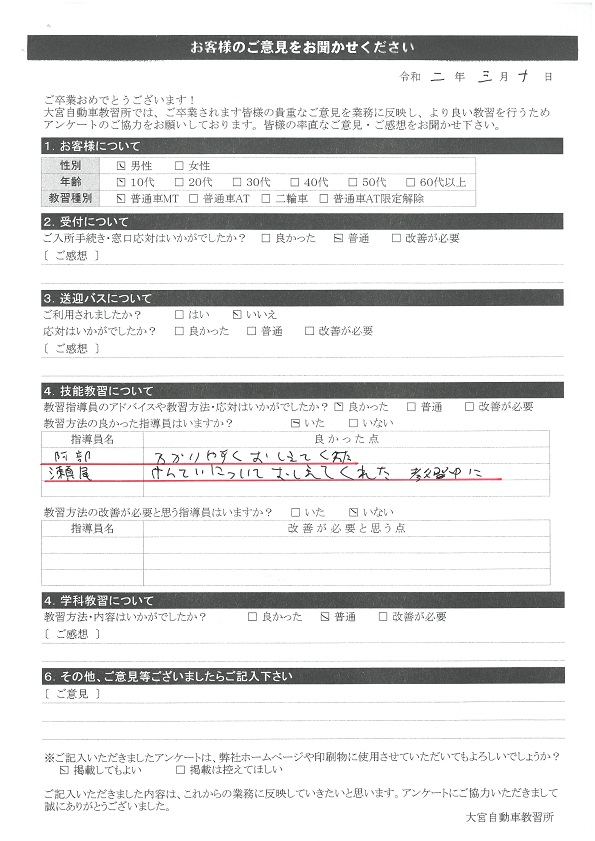 お客様のご意見をお聞かせください
令和 二 年 三 月 十 日
ご卒業おめでとうございます！
大宮自動車教習所では、ご卒業されます皆様の貴重なご意見を業務に反映し、より良い教習を行うため
アンケートのご協力をお願いしております。皆様の率直なご意見・ご感想をお聞かせ下さい。
1. お客様について
性別 ☑ 男性 □ 女性
年齢 ☑ 10代 □ 20代 □ 30代 □ 40代 □ 50代 □ 60代以上
教習種別 ☑ 普通車MT □ 普通車AT □ 二輪車 □ 普通車AT限定解除
2. 受付について
ご入所手続き・窓口応対はいかがでしたか？ □ 良かった ☑ 普通 □ 改善が必要
［ ご感想 ］
3. 送迎バスについて
ご利用されましたか？ □ はい ☑ いいえ
応対はいかがでしたか？ □ 良かった □ 普通 □ 改善が必要
［ ご感想 ］
4. 技能教習について
教習指導員のアドバイスや教習方法・応対はいかがでしたか？ ☑ 良かった □ 普通 □ 改善が必要
教習方法の良かった指導員はいますか？ ☑ いた □ いない
指導員名 良かった点
阿部 わかりやすくおしえてくれた
瀬尾 けんていについておしえてくれた 教習中に
教習方法の改善が必要と思う指導員はいますか？ □ いた ☑ いない
指導員名 改善が必要と思う点
4. 学科教習について
教習方法・内容はいかがでしたか？ □ 良かった ☑ 普通 □ 改善が必要
［ ご感想 ］
6. その他、ご意見等ございましたらご記入下さい
［ ご意見 ］
※ご記入いただきましたアンケートは、弊社ホームページや印刷物に使用させていただいてもよろしいでしょうか？
☑ 掲載してもよい □ 掲載は控えてほしい
ご記入いただきました内容は、これからの業務に反映していきたいと思います。アンケートにご協力いただきまして
誠にありがとうございました。
大宮自動車教習所